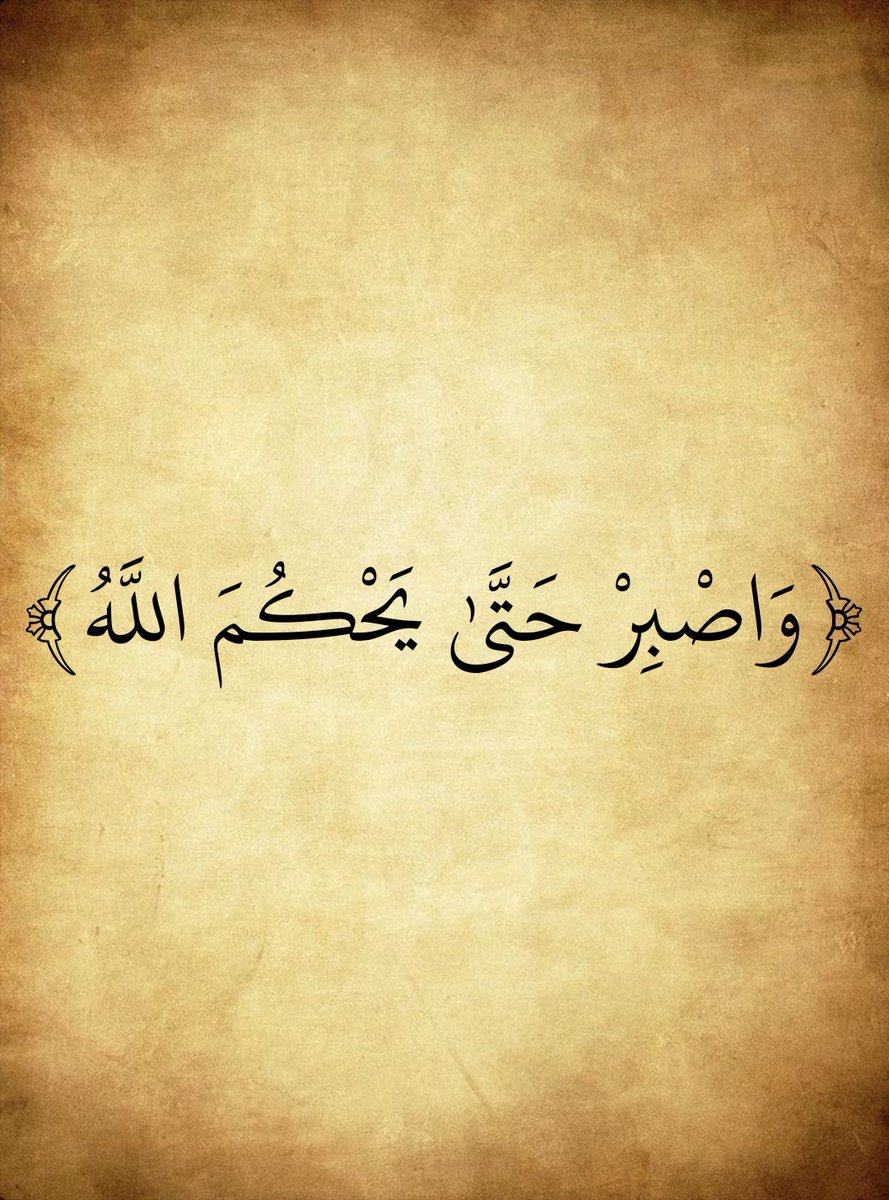 ﴿وَاصْبِرْ حَتَّىٰ يَحْكُمَ اللَّهُ﴾